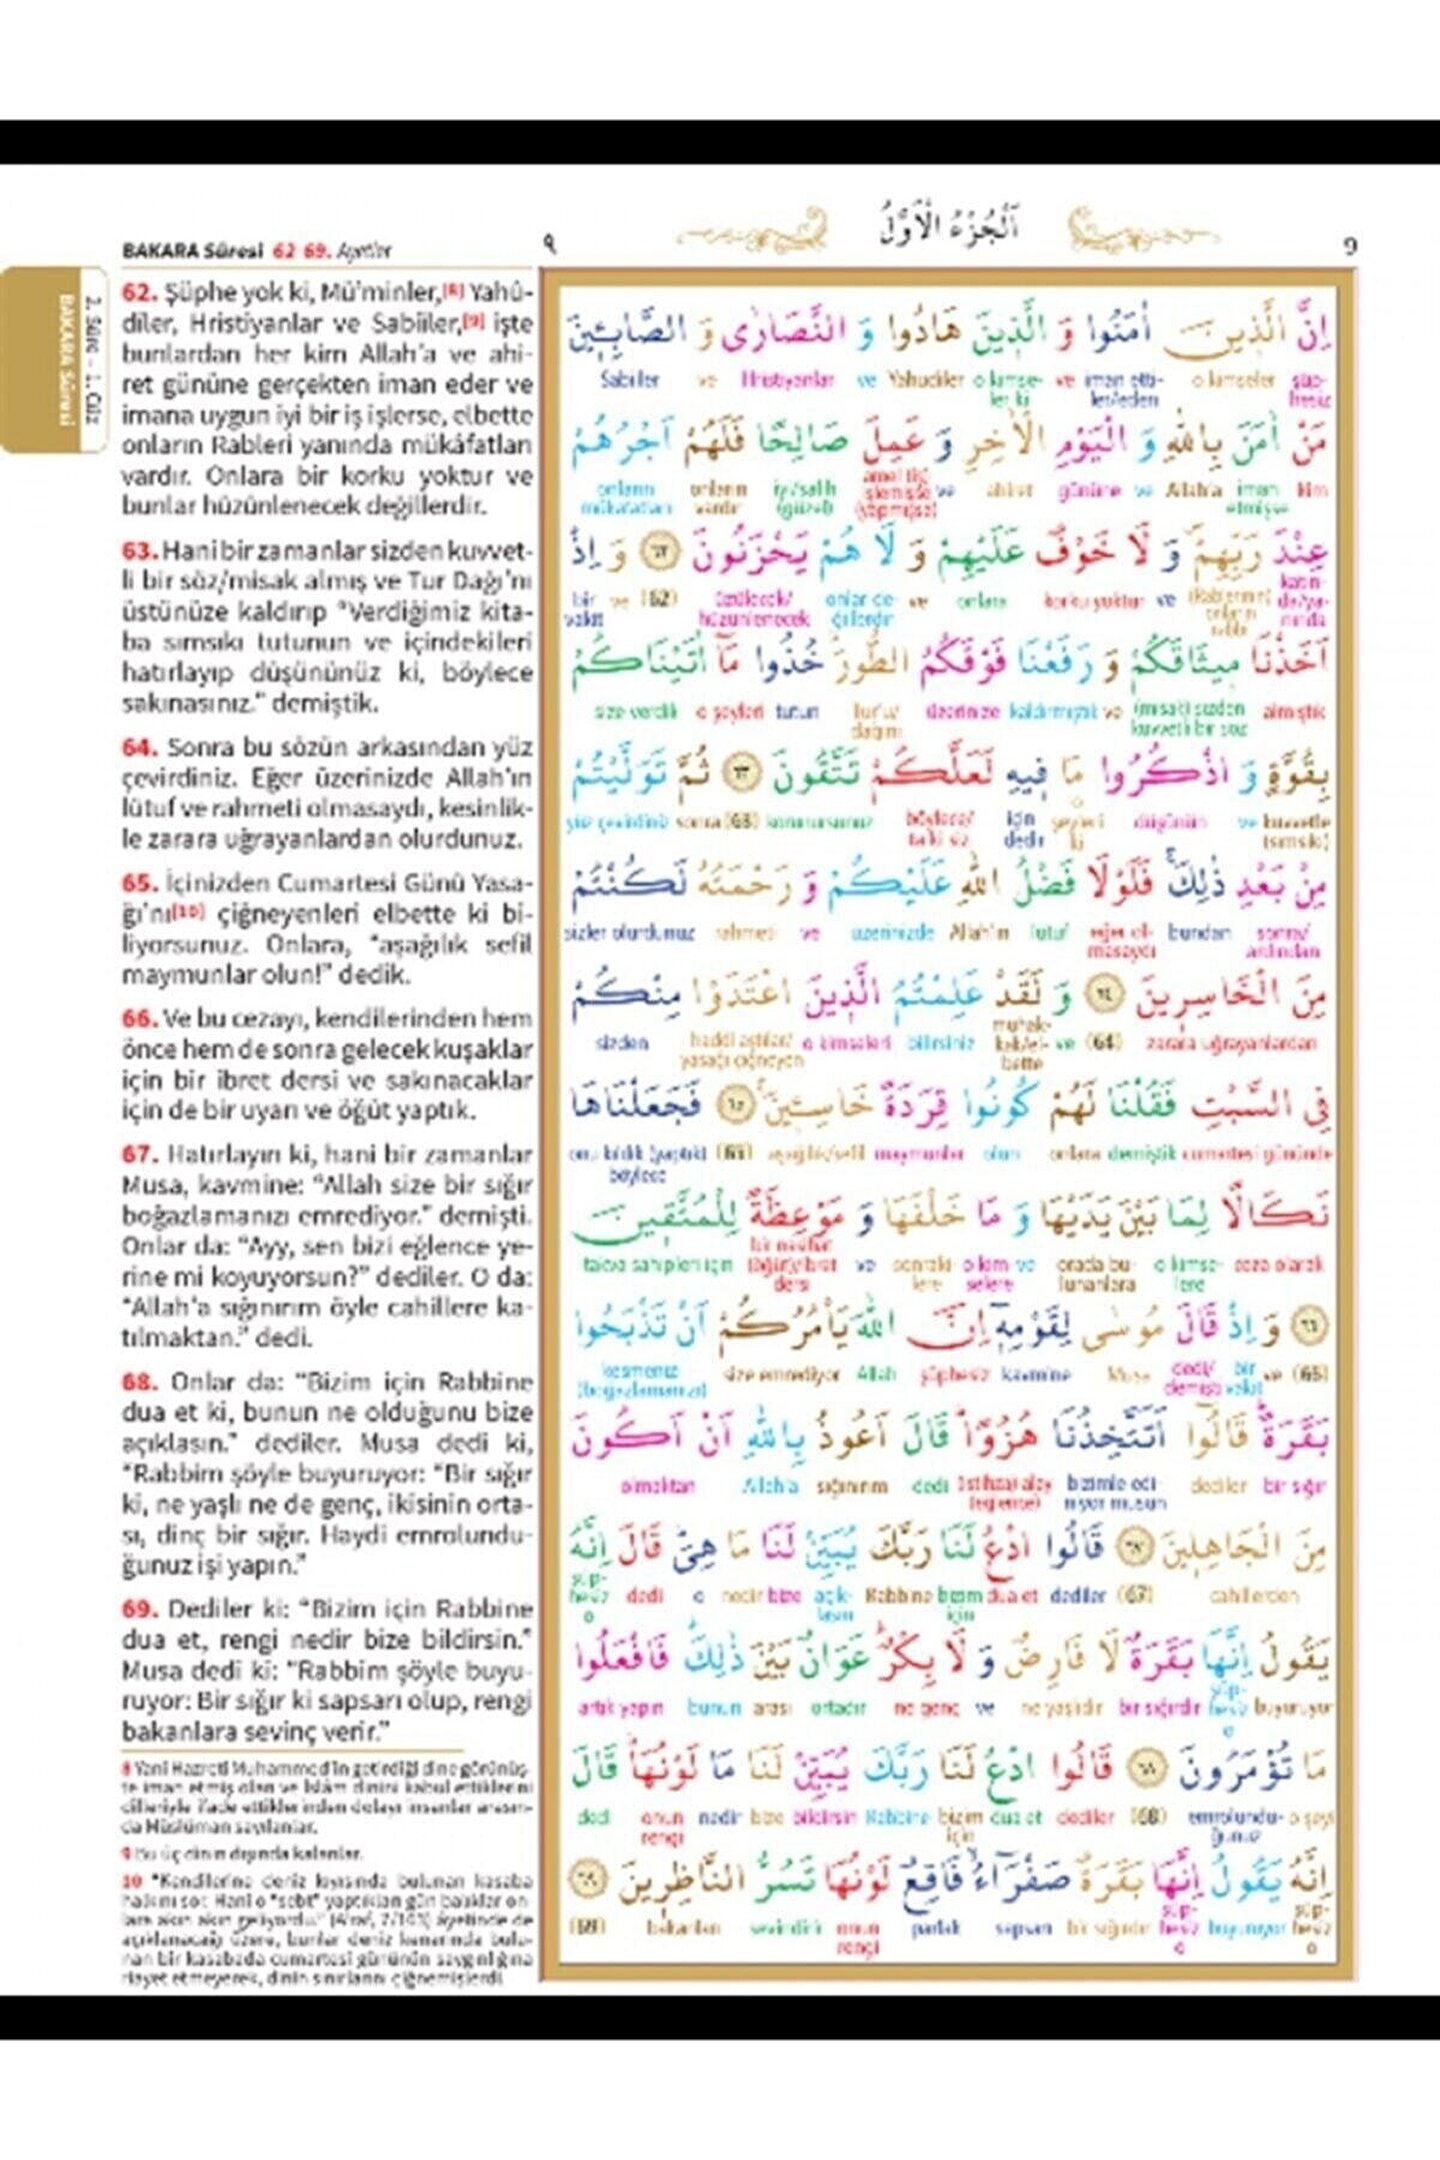 BAKARA Sûresi 62-69. Ayetler
٩
اَلْجُزْءُ الْاَوَّلُ
9
2. Sûre - 1. Cüz
BAKARA Sûresi
62. Şüphe yok ki, Mü'minler,[8] Yahû-
diler, Hristiyanlar ve Sabiiler,[9] işte
bunlardan her kim Allah'a ve ahi-
ret gününe gerçekten iman eder ve
imana uygun iyi bir iş işlerse, elbette
onların Rableri yanında mükâfatları
vardır. Onlara bir korku yoktur ve
bunlar hüzünlenecek değillerdir.
63. Hani bir zamanlar sizden kuvvet-
li bir söz/misak almış ve Tur Dağı'nı
üstünüze kaldırıp "Verdiğimiz kita-
ba sımsıkı tutunun ve içindekileri
hatırlayıp düşününüz ki, böylece
sakınasınız." demiştik.
64. Sonra bu sözün arkasından yüz
çevirdiniz. Eğer üzerinizde Allah'ın
lütuf ve rahmeti olmasaydı, kesinlik-
le zarara uğrayanlardan olurdunuz.
65. İçinizden Cumartesi Günü Yasa-
ğı'nı[10] çiğneyenleri elbette ki bi-
liyorsunuz. Onlara, "aşağılık sefil
maymunlar olun!" dedik.
66. Ve bu cezayı, kendilerinden hem
önce hem de sonra gelecek kuşaklar
için bir ibret dersi ve sakınacaklar
için de bir uyarı ve öğüt yaptık.
67. Hatırlayın ki, hani bir zamanlar
Musa, kavmine: "Allah size bir sığır
boğazlamanızı emrediyor." demişti.
Onlar da: "Ayy, sen bizi eğlence ye-
rine mi koyuyorsun?" dediler. O da:
"Allah'a sığınırım öyle cahillere ka-
tılmaktan." dedi.
68. Onlar da: "Bizim için Rabbine
dua et ki, bunun ne olduğunu bize
açıklasın." dediler. Musa dedi ki,
"Rabbim şöyle buyuruyor: "Bir sığır
ki, ne yaşlı ne de genç, ikisinin orta-
sı, dinç bir sığır. Haydi emrolundu-
ğunuz işi yapın."
69. Dediler ki: "Bizim için Rabbine
dua et, rengi nedir bize bildirsin."
Musa dedi ki: "Rabbim şöyle buyu-
ruyor: Bir sığır ki sapsarı olup, rengi
bakanlara sevinç verir."
8 Yani Hazreti Muhammed'in getirdiği dine görünüş-
te iman etmiş olan ve İslâm dinini kabul ettiklerini
dilleriyle ifade ettiklerinden dolayı insanlar arasın-
da Müslüman sayılanlar.
9 Bu üç dinin dışında kalanlar.
10 "Kendilerine deniz kıyısında bulunan kasaba
halkını sor. Hani o "sebt" yaptıkları gün balıklar on-
lara akın akın geliyordu." (A'raf, 7/163) âyetinde de
açıklanacağı üzere, bunlar deniz kenarında bulu-
nan bir kasabada cumartesi gününün saygınlığına
riayet etmeyerek, dinin sınırlarını çiğnemişlerdi.
اِنَّ الَّذِينَ اٰمَنُوا وَ الَّذِينَ هَادُوا وَ النَّصَارٰى وَ الصَّابِـِٔينَ
şüp-hesiz o kimseler iman etti-ler/eden ve o kimse-ler ki Yahudiler ve Hristiyanlar ve Sabiiler
مَنْ اٰمَنَ بِاللّٰهِ وَ الْيَوْمِ الْاٰخِرِ وَ عَمِلَ صَالِحًا فَلَهُمْ اَجْرُهُمْ
kim iman etmişse Allah'a ve gününe ahiret ve amel (iş) işlemişse (yapmışsa) iyi/salih (güzel) onların vardır onların mükafatları
عِنْدَ رَبِّهِمْ وَ لَا خَوْفٌ عَلَيْهِمْ وَ لَا هُمْ يَحْزَنُونَ ٦٢ وَ اِذْ
katın-da/ya-nında (Rablerinin) onların rabbi ve korku yoktur onlara ve onlar de-ğillerdir üzülecek/hüzünlenecek (62) ve bir vakit
اَخَذْنَا مِيثَاقَكُمْ وَ رَفَعْنَا فَوْقَكُمُ الطُّورَ خُذُوا مَٓا اٰتَيْنَاكُمْ
almıştık (misak) sizden kuvvetli bir söz ve kaldırmıştık üzerinize tur'u/dağını tutun o şeyleri size verdik
بِقُوَّةٍ وَ اذْكُرُوا مَا فِيهِ لَعَلَّكُمْ تَتَّقُونَ ٦٣ ثُمَّ تَوَلَّيْتُمْ
kuvvetle (sımsıkı) ve düşünün şeyleri ki için dedir böylece/ta ki siz korunursunuz (63) sonra yüz çevirdiniz
مِنْ بَعْدِ ذٰلِكَ فَلَوْلَا فَضْلُ اللّٰهِ عَلَيْكُمْ وَ رَحْمَتُهُ لَكُنْتُمْ
sonra/ardından bundan eğer ol-masaydı lütuf Allah'ın üzerinizde ve rahmeti sizler olurdunuz
مِنَ الْخَاسِرِينَ ٦٤ وَ لَقَدْ عَلِمْتُمُ الَّذِينَ اعْتَدَوْا مِنْكُمْ
zarara uğrayanlardan (64) ve muhak-kak/el-bette bilirsiniz o kimseleri haddi aştılar/yasağı çiğneyen sizden
فِي السَّبْتِ فَقُلْنَا لَهُمْ كُونُوا قِرَدَةً خَاسِـِٔينَ ٦٥ فَجَعَلْنَاهَا
cumartesi gününde demiştik onlara olun maymunlar aşağılık/sefil (65) onu kıldık (yaptık) böylece
نَكَالًا لِمَا بَيْنَ يَدَيْهَا وَ مَا خَلْفَهَا وَ مَوْعِظَةً لِلْمُتَّقِينَ
ceza olarak o kimse-lere orada bu-lunanlara ve o kim-selere sonraki-lere ve bir nasihat (öğüt)/ibret dersi takva sahipleri için
٦٦ وَ اِذْ قَالَ مُوسٰى لِقَوْمِهِٓ اِنَّ اللّٰهَ يَأْمُرُكُمْ اَنْ تَذْبَحُوا
(66) ve bir vakit dedi/demişti Musa kavmine şüphesiz Allah size emrediyor kesmeniz (boğazlamanızı)
بَقَرَةً قَالُٓوا اَتَتَّخِذُنَا هُزُوًا قَالَ اَعُوذُ بِاللّٰهِ اَنْ اَكُونَ
bir sığır dediler bizimle edi-niyor musun (istihza) alay (eğlence) dedi sığınırım Allah'a olmaktan
مِنَ الْجَاهِلِينَ ٦٧ قَالُوا ادْعُ لَنَا رَبَّكَ يُبَيِّنْ لَنَا مَا هِيَ قَالَ اِنَّهُ
cahillerden (67) dediler dua et bizim için Rabbine açık-lasın bize nedir o dedi şüp-hesiz o
يَقُولُ اِنَّهَا بَقَرَةٌ لَا فَارِضٌ وَ لَا بِكْرٌ عَوَانٌ بَيْنَ ذٰلِكَ فَافْعَلُوا
buyuruyor şüp-hesiz o bir sığırdır ne yaşlıdır ve ne genç ortadır arası bunun artık yapın
مَا تُؤْمَرُونَ ٦٨ قَالُوا ادْعُ لَنَا رَبَّكَ يُبَيِّنْ لَنَا مَا لَوْنُهَا قَالَ
o şeyi emrolundu-ğunuz (68) dediler dua et bizim için Rabbine bildirsin bize nedir onun rengi dedi
اِنَّهُ يَقُولُ اِنَّهَا بَقَرَةٌ صَفْرَٓاءُ فَاقِعٌ لَوْنُهَا تَسُرُّ النَّاظِرِينَ ٦٩
şüp-hesiz o buyuruyor şüp-hesiz o bir sığırdır sapsarı parlak onun rengi sevindirir bakanları (69)